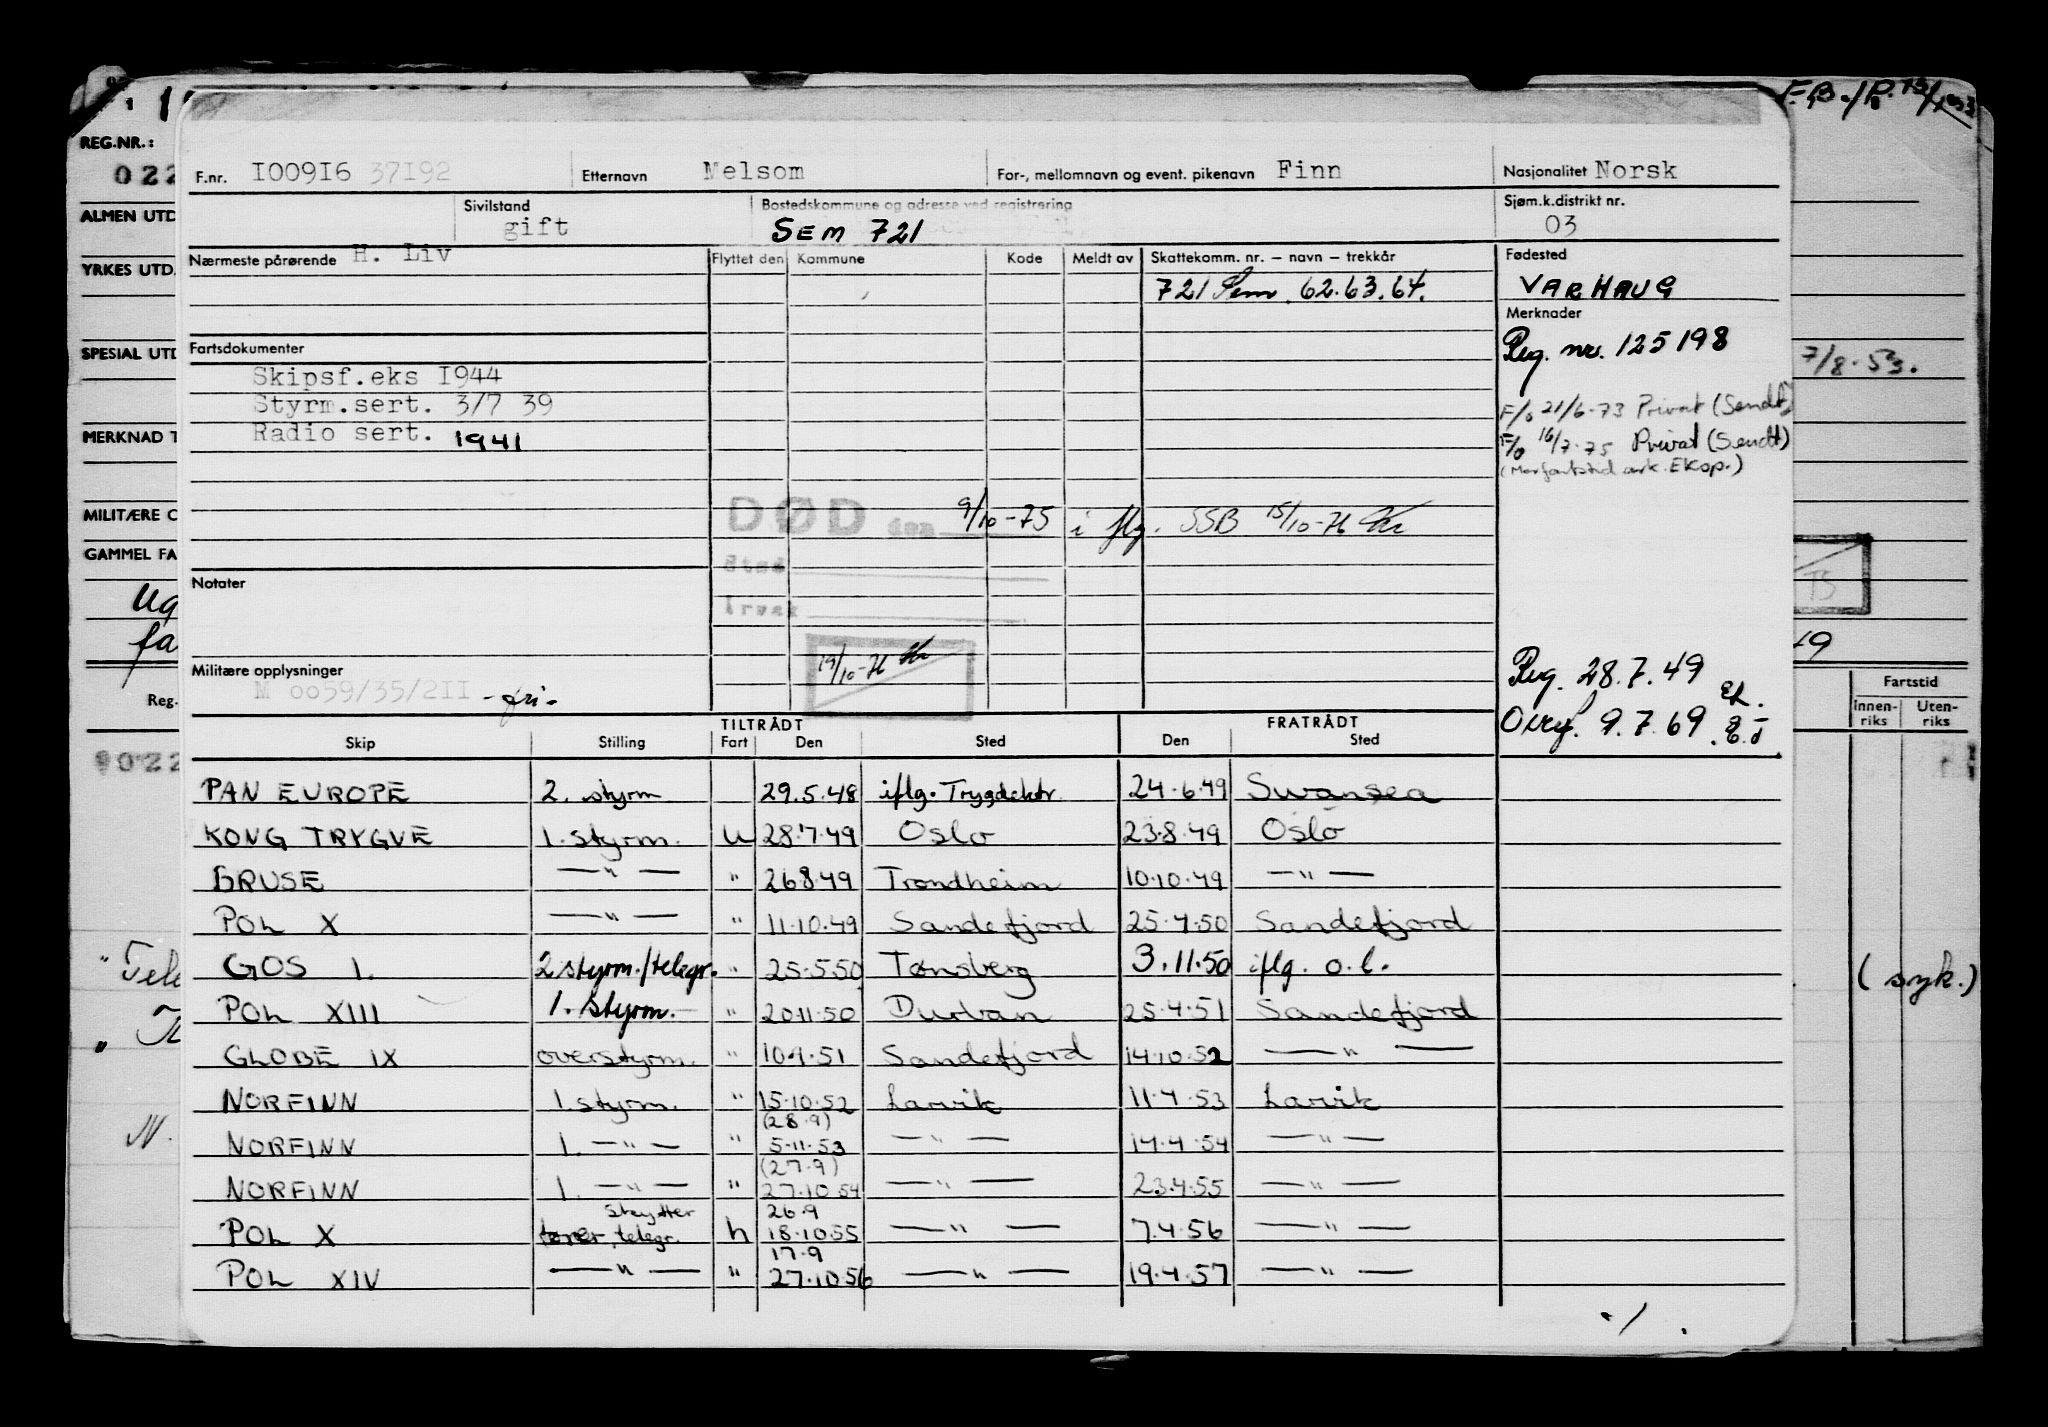 F.B./R.
REG.NR.:
022
F.nr. I009I6 37I92 Etternavn Melsom For-, mellomnavn og event. pikenavn Finn Nasjonalitet Norsk
ALMEN UTD
Sivilstand gift Bostedskommune og adresse ved registrering SEM 721 Sjøm.k.distrikt nr. 03
YRKES UTD.
Nærmeste pårørende H. Liv Flyttet den Kommune Kode Meldt av Skattekomm. nr. – navn – trekkår Fødested
721 Sem 62.63.64. VARHAUG
Merknader
SPESIAL UTD
Fartsdokumenter Reg. nr. 125198
7/8.53.
Skipsf.eks I944
Styrm.sert. 3/7 39 F/o 21/6-73 Privat (Sendt)
MERKNAD T
Radio sert. 1941 F/o 16/7-75 Privat (Sendt)
MILITÆRE O
DØD den 9/10-75 i flg. SSB 15/10-76
GAMMEL FA
Sted
Notater
Årsak
19/10-76
Militære opplysninger Reg. 28.7.49
M 0059/35/2II -fri-
Overf. 9.7.69
Reg.
Fartstid
Innen-riks Uten-riks
TILTRÅDT FRATRÅDT
Skip Stilling Fart Den Sted Den Sted
9022
PAN EUROPE 2. styrm 29.5.48 iflg. Trygdektr. 24.6.49 Swansea
KONG TRYGVE 1. styrm. u 28.7.49 Oslo 23.8.49 Oslo
BRUSE —"— " 26.8.49 Trondheim 10.10.49 —"—
POL X —"— " 11.10.49 Sandefjord 25.4.50 Sandefjord
GOS 1. 2 styrm./telegr. " 25.5.50 Tønsberg 3.11.50 iflg. o.l.
(syk.)
POL XIII 1. styrm. " 20.11.50 Durban 25.4.51 Sandefjord
GLOBE IX overstyrm. " 10.9.51 Sandefjord 14.10.52 —"—
NORFINN 1. styrm. " 15.10.52 Larvik 11.4.53 Larvik
(28.9)
NORFINN 1. —"— " 5.11.53 —"— 14.4.54 —"—
(27.9)
NORFINN 1. —"— " 27.10.54 —"— 23.4.55 —"—
skytter 26.9
POL X telegr. h 18.10.55 —"— 7.4.56 —"—
17.9
POL XIV —"— " 27.10.56 —"— 19.4.57 —"—
./.